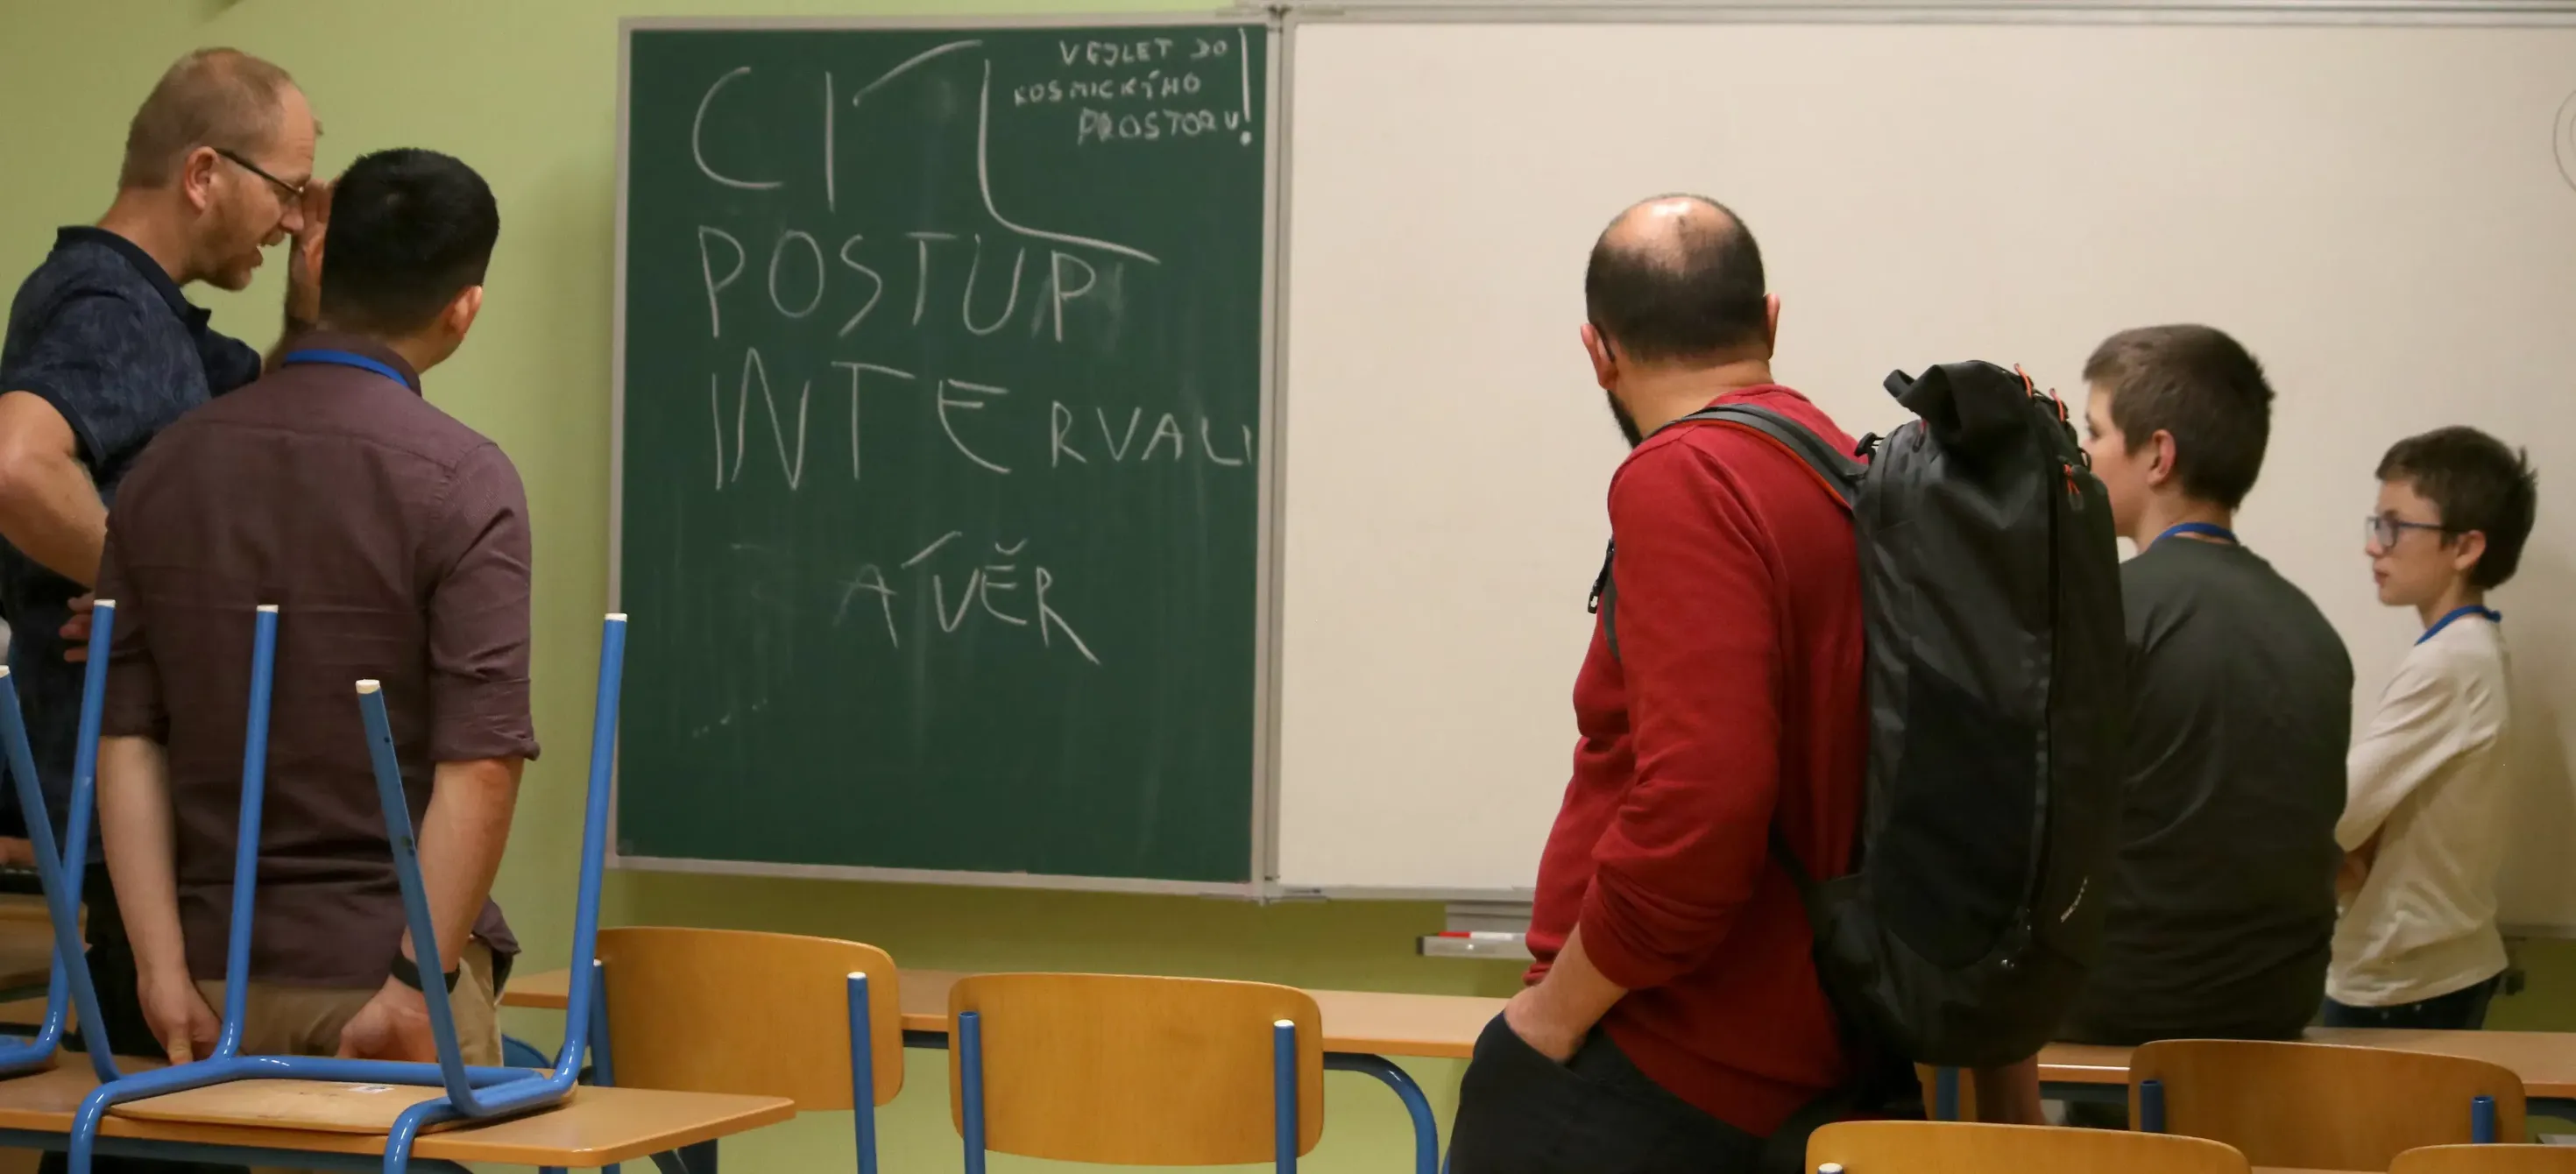 CÍL
VEJLET DO
KOSMICKÝHO
PROSTORU!
POSTUP
INTERVALI
ÁVĚR